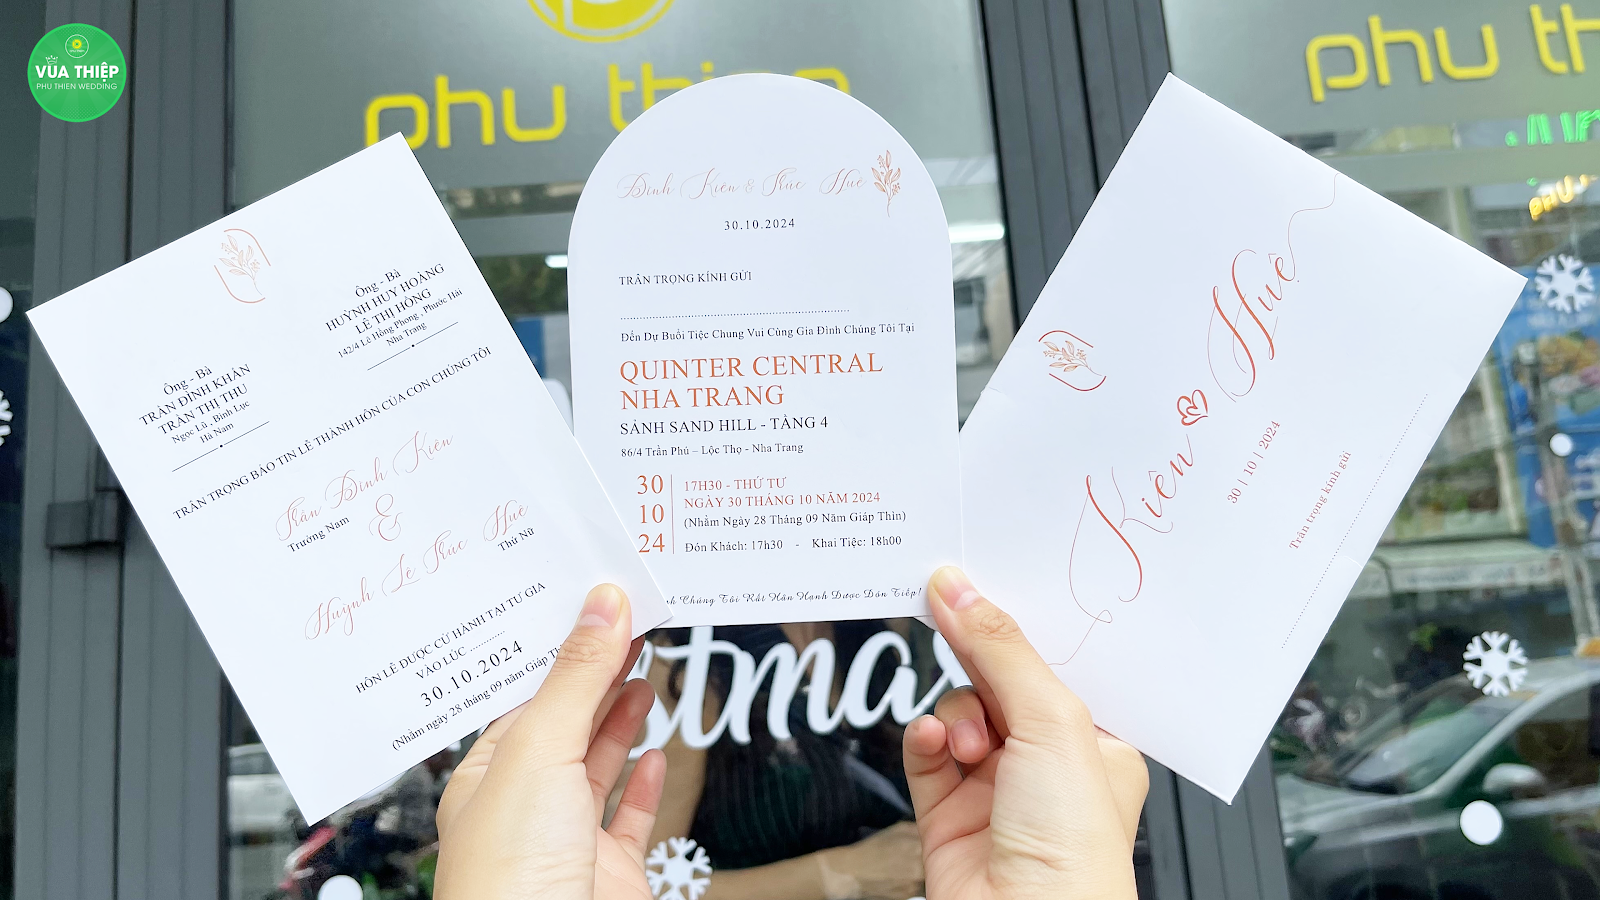 VUA THIỆP
PHU THIEN WEDDING
phu thien
phu th
Ông - Bà
TRẦN ĐÌNH KHÂN
TRẦN THỊ THU
Ngọc Lũ , Bình Lục
Hà Nam
Ông - Bà
HUỲNH HUY HOÀNG
LÊ THỊ HỒNG
142/4 Lê Hồng Phong , Phước Hải
Nha Trang
TRÂN TRỌNG BÁO TIN LỄ THÀNH HÔN CỦA CON CHÚNG TÔI
Trần Đình Kiên
Trưởng Nam
&
Huỳnh Lê Trúc Huê
Thứ Nữ
HÔN LỄ ĐƯỢC CỬ HÀNH TẠI TƯ GIA
VÀO LÚC ............
30.10.2024
(Nhằm ngày 28 tháng 09 năm Giáp Th
Đình Kiên & Trúc Huê
30.10.2024
TRÂN TRỌNG KÍNH GỬI
Đến Dự Buổi Tiệc Chung Vui Cùng Gia Đình Chúng Tôi Tại
QUINTER CENTRAL
NHA TRANG
SẢNH SAND HILL - TẦNG 4
86/4 Trần Phú – Lộc Thọ - Nha Trang
30
10
24
17H30 - THỨ TƯ
NGÀY 30 THÁNG 10 NĂM 2024
(Nhằm Ngày 28 Tháng 09 Năm Giáp Thìn)
Đón Khách: 17h30 - Khai Tiệc: 18h00
nh Chúng Tôi Rất Hân Hạnh Được Đón Tiếp!
Kiên Huê
30 | 10 | 2024
Trân trọng kính gửi
stmas